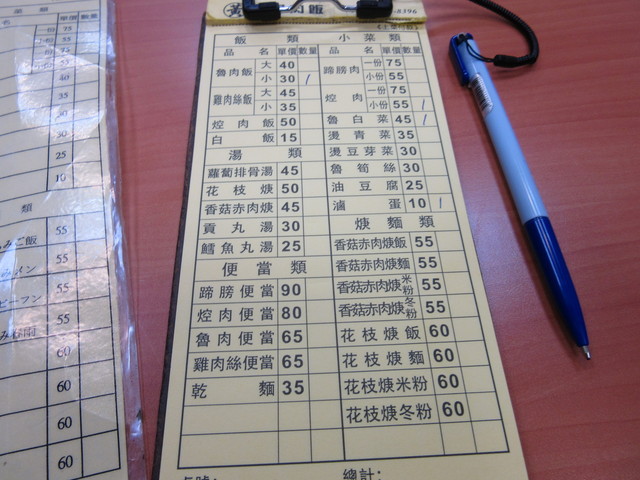 菜 類
單價 數量
份 75
小份 55
份 75
小份 55
40
35
35
30
25
10
類
55
55
55
55
60
60
60
60
黃
-8396
飯 類
品 名 單價 數量
魯肉飯 大 40
小 30 /
雞肉絲飯 大 45
小 35
焢肉飯 50
白飯 15
湯 類
蘿蔔排骨湯 45
花枝焿 50
香菇赤肉焿 45
貢丸湯 30
鱈魚丸湯 25
便當類
蹄膀便當 90
焢肉便當 80
魯肉便當 65
雞肉絲便當 65
乾麵 35
小菜類
品 名 單價 數量
蹄膀肉 一份 75
小份 55
焢肉 一份 75
小份 55 /
魯白菜 45 /
燙青菜 35
燙豆芽菜 30
魯筍絲 30
油豆腐 25
滷蛋 10 /
焿麵類
香菇赤肉焿飯 55
香菇赤肉焿麵 55
香菇赤肉焿米粉 55
香菇赤肉焿冬粉 55
花枝焿飯 60
花枝焿麵 60
花枝焿米粉 60
花枝焿冬粉 60
總計: